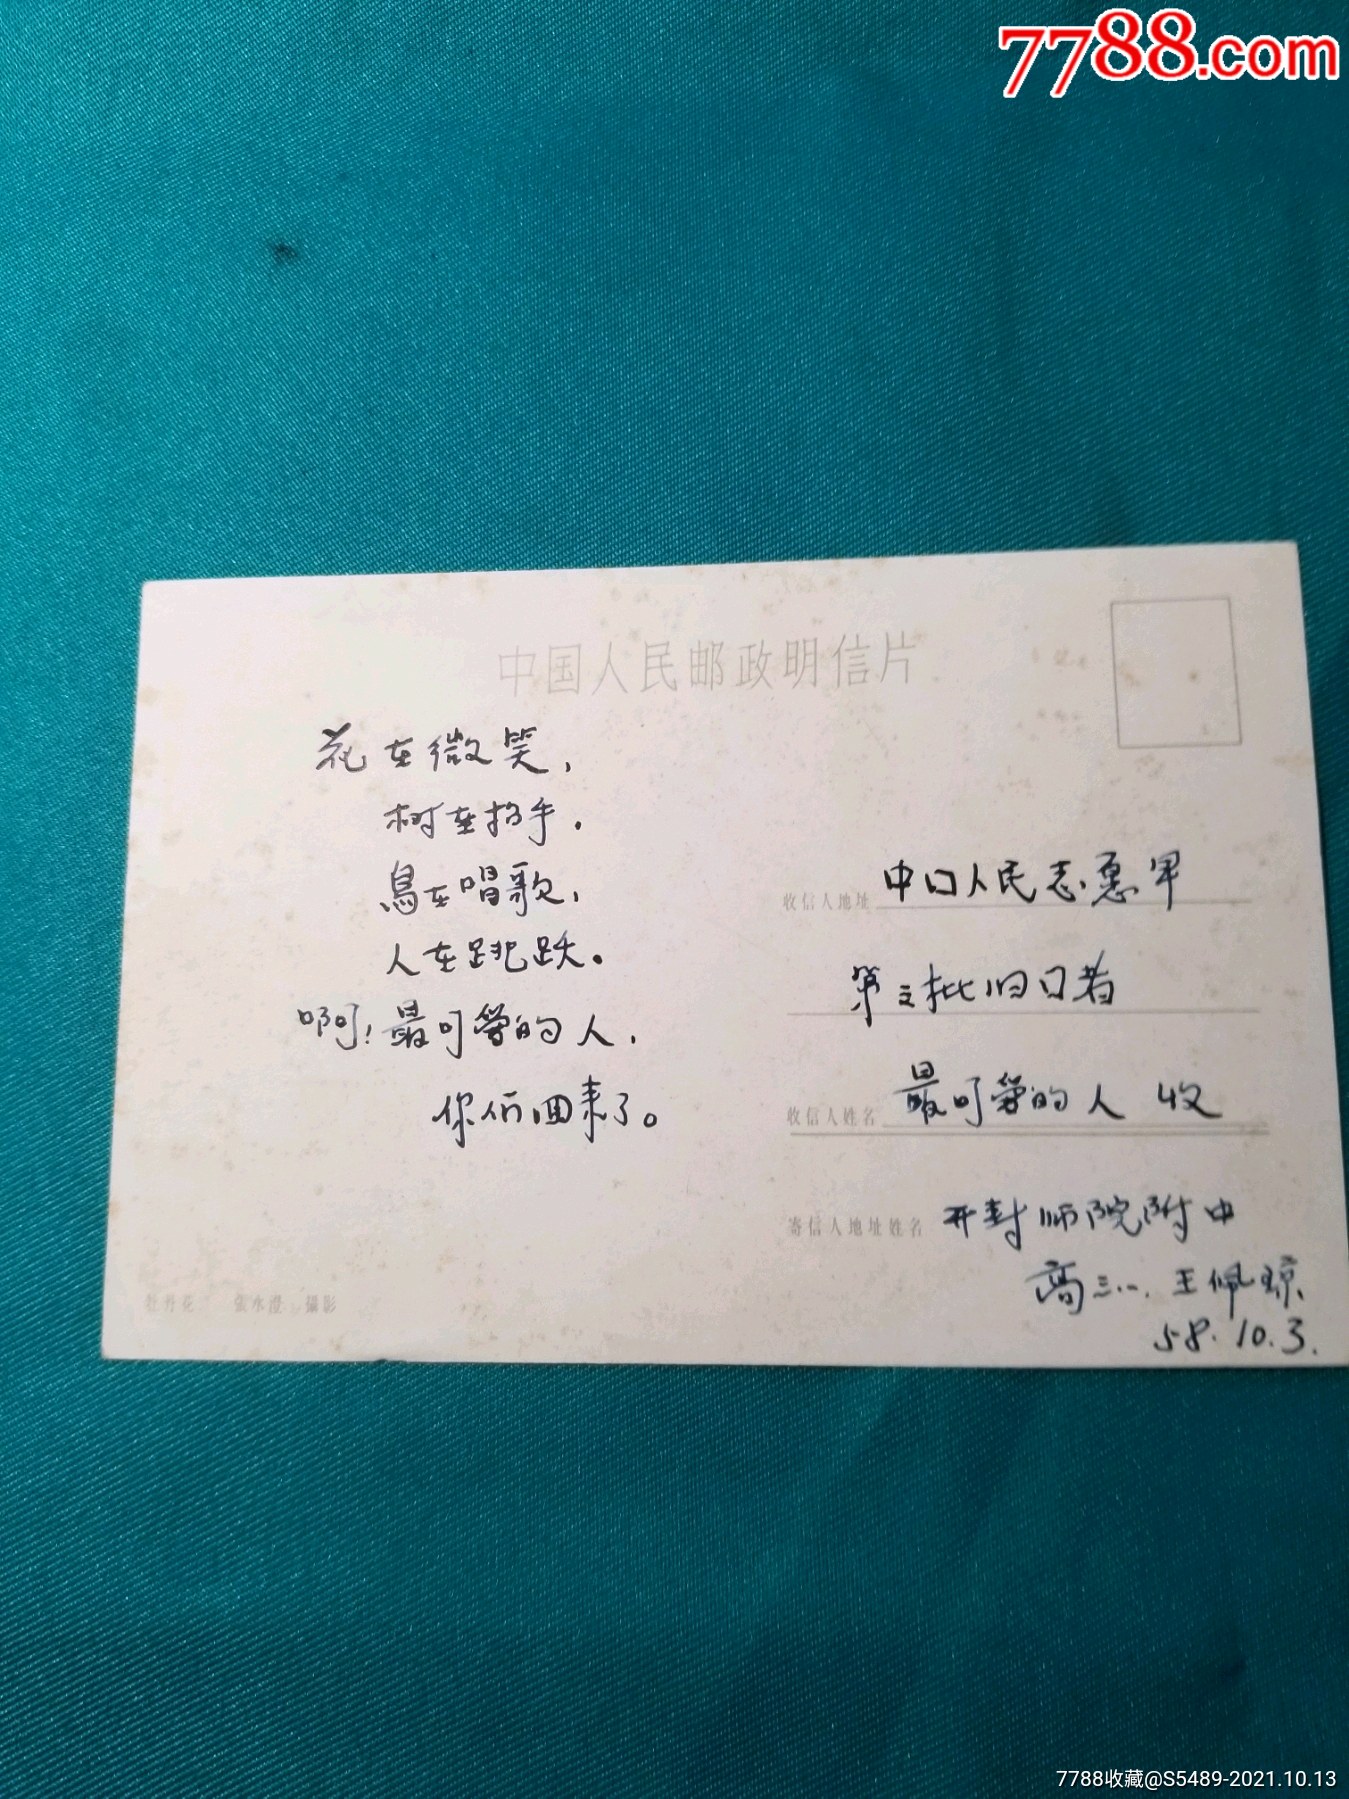 7788.com
中国人民邮政明信片
花在微笑,
树在招手.
鳥在唱歌,
人在跳跃。
啊!最可爱的人,
你们回来了。
收信人地址 中口人民志愿军
第 批归口者
收信人姓名 最可爱的人 收
寄信人地址姓名 开封师院附中
高三.一. 王佩琼
58.10.3.
牡丹花 张水澄 攝影
7788收藏@S5489-2021.10.13